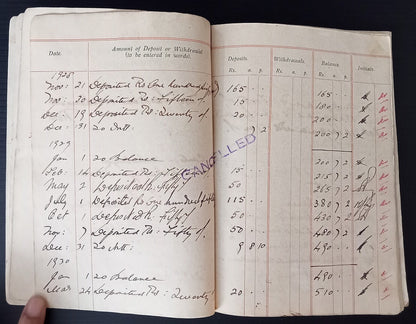 Date.
Amount of Deposit or Withdrawal (to be entered in words).
Deposits.
Withdrawals.
Balance.
Initials.
Rs. a. p.
Rs. a. p.
Rs. a. p.
1928
Nov: 21 Deposited Rs One hundred 165 165
Nov: 20 Deposited Rs: Fifteen 15 180
Dec: 19 Deposited Rs: Twenty 20 200
Dec: 31 To Intt. 2 200 2
CANCELLED
1929
Jan 1 To Balance 200 2
Feb: 14 Deposited Rs: 15 215
May 2 Deposited Rs: Fifty 50 265
July 1 Deposited Rs One hundred 115 380
Oct 1 Deposited Rs. Fifty 50 430
Nov: Deposited Rs: Fifty 50 480
Dec: 31 To Intt: 9 8 10 490
1930
Jan 1 To Balance 490
Mar 24 Deposited Rs: Twenty 20 510